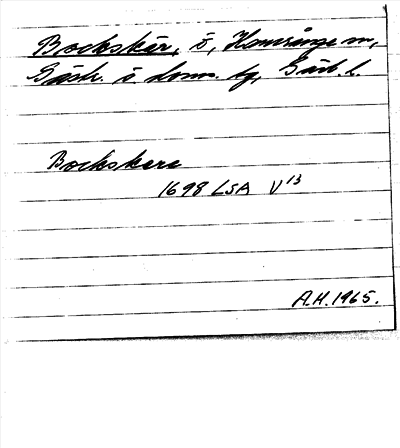 Bockskär, ö, Hamrånge sn,
Gästr. ö. doms. tg, Gävl. l.
Bockskare
1698 LSA V 13
A.H. 1965.